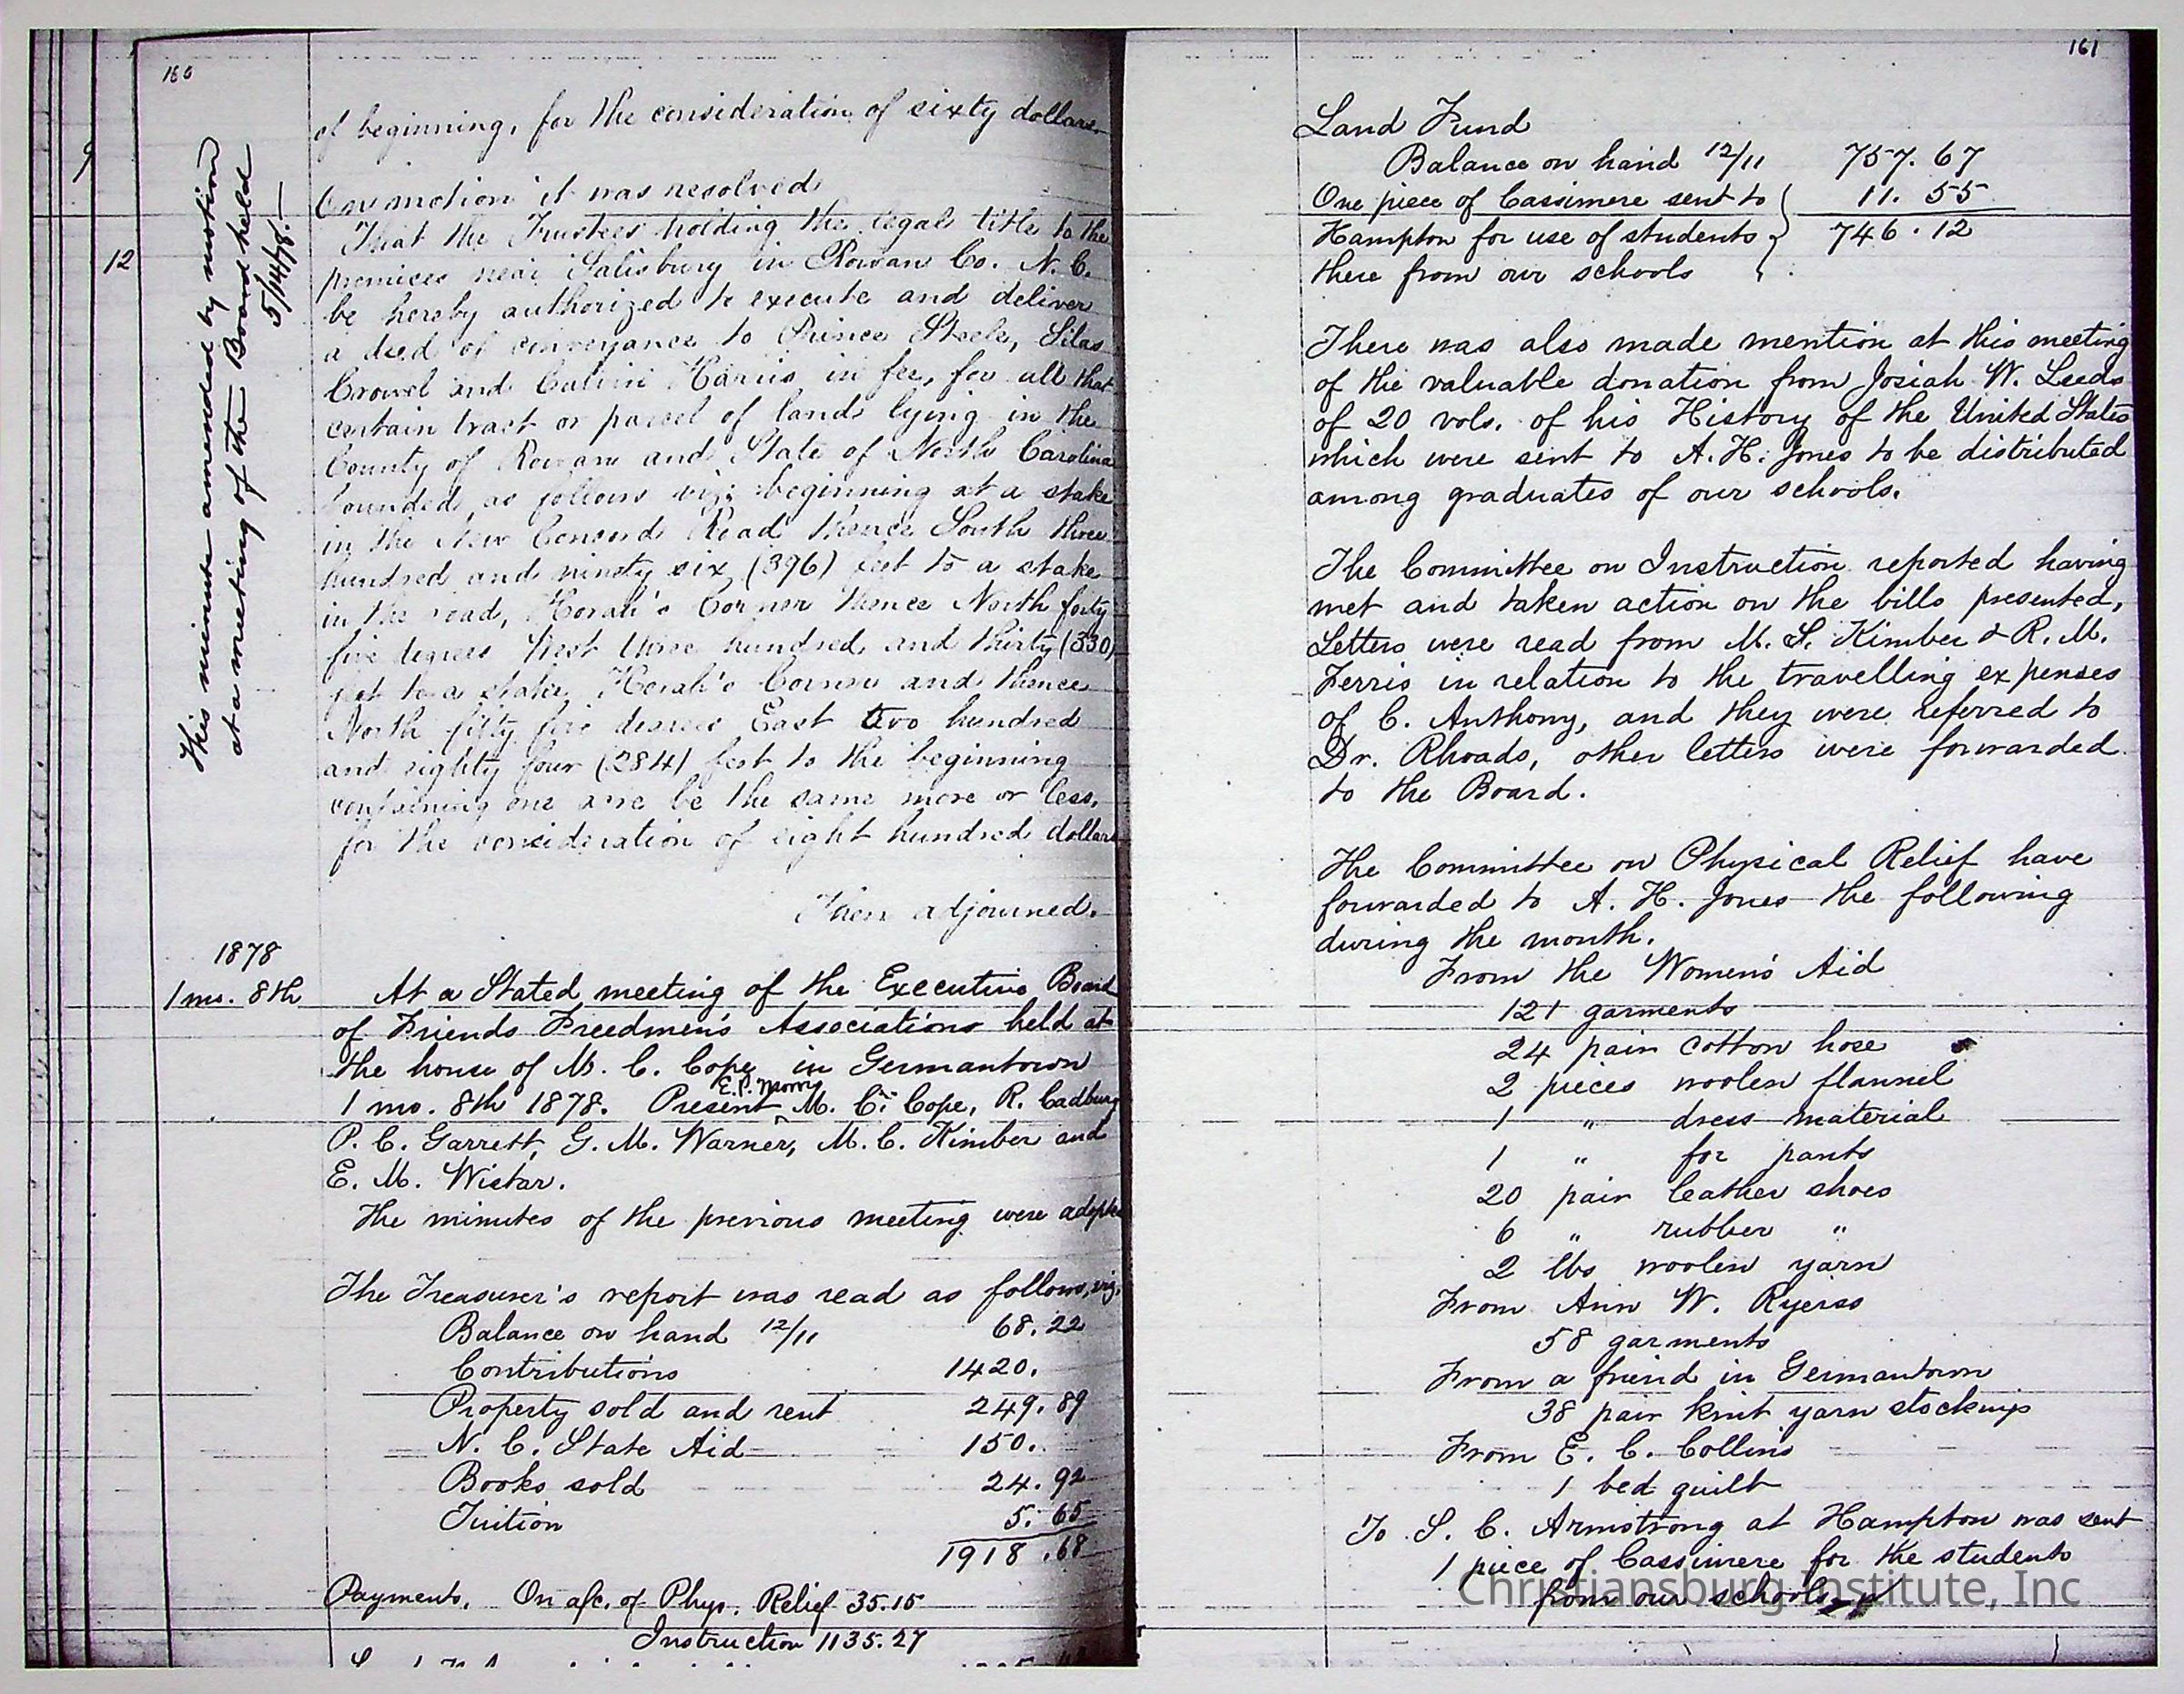 160
of beginning, for the consideration of sixty dollars
On motion it was resolved
That the Trustees holding the legal title to the
premices near Salisbury in Rowan Co. N. C.
be hereby authorized to execute and deliver
a deed of conveyance to Prince Steele, Silas
Crowel and Calvin Harris in fee, for all that
certain tract or parcel of land lying in the
County of Rowan and State of North Carolina
bounded as follows viz; beginning at a stake
in the New Concord Road thence South three
hundred and ninety six (396) feet to a stake
in the road, Horah's Corner thence North forty
five degrees West three hundred and thirty (330)
feet to a stake, Horah's Corner and thence
North fifty five degrees East two hundred
and eighty four (284) feet to the beginning
containing one acre be the same more or less,
for the consideration of eight hundred dollars
Then adjourned.
This minute amended by motion
at a meeting of the Board held
5/14/78.
9
12
1878
1 mo. 8th
At a Stated meeting of the Executive Board
of Friends Freedmen's Associations held at
the house of M. C. Cope in Germantown
E. P. Morris
1 mo. 8th 1878. Present M. C. Cope, R. Cadbury
P. C. Garrett, G. M. Warner, M. C. Kimber and
E. M. Wistar.
The minutes of the previous meeting were adopte
The Treasurer's report was read as follows, viz.
Balance on hand 12/11 68.22
Contributions 1420.
Property sold and rent 249.89
N. C. State Aid 150.
Books sold 24.92
Tuition 5.65
1918.68
Payments. On a/c. of Phys. Relief 35.15
Instruction 1135.27
161
Land Fund
Balance on hand 12/11 757.67
One piece of Cassimere sent to 11.55
Hampton for use of students 746.12
there from our schools
There was also made mention at this meeting
of the valuable donation from Josiah W. Leeds
of 20 vols. of his History of the United States
which were sent to A. H. Jones to be distributed
among graduates of our schools.
The Committee on Instruction reported having
met and taken action on the bills presented,
Letters were read from M. S. Kimber & R. M.
Ferris in relation to the travelling expenses
of C. Anthony, and they were referred to
Dr. Rhoads, other letters were forwarded
to the Board.
The Committee on Physical Relief have
forwarded to A. H. Jones the following
during the month.
From the Women's Aid
121 garments
24 pair cotton hose
2 pieces woolen flannel
1 " dress material
1 " for pants
20 pair leather shoes
6 " rubber "
2 lbs woolen yarn
From Ann W. Ryerss
58 garments
From a friend in Germantown
38 pair knit yarn stockings
From E. C. Collins
1 bed quilt
To S. C. Armstrong at Hampton was sent
1 piece of Cassimere for the students
from our schools
Christiansburg Institute, Inc